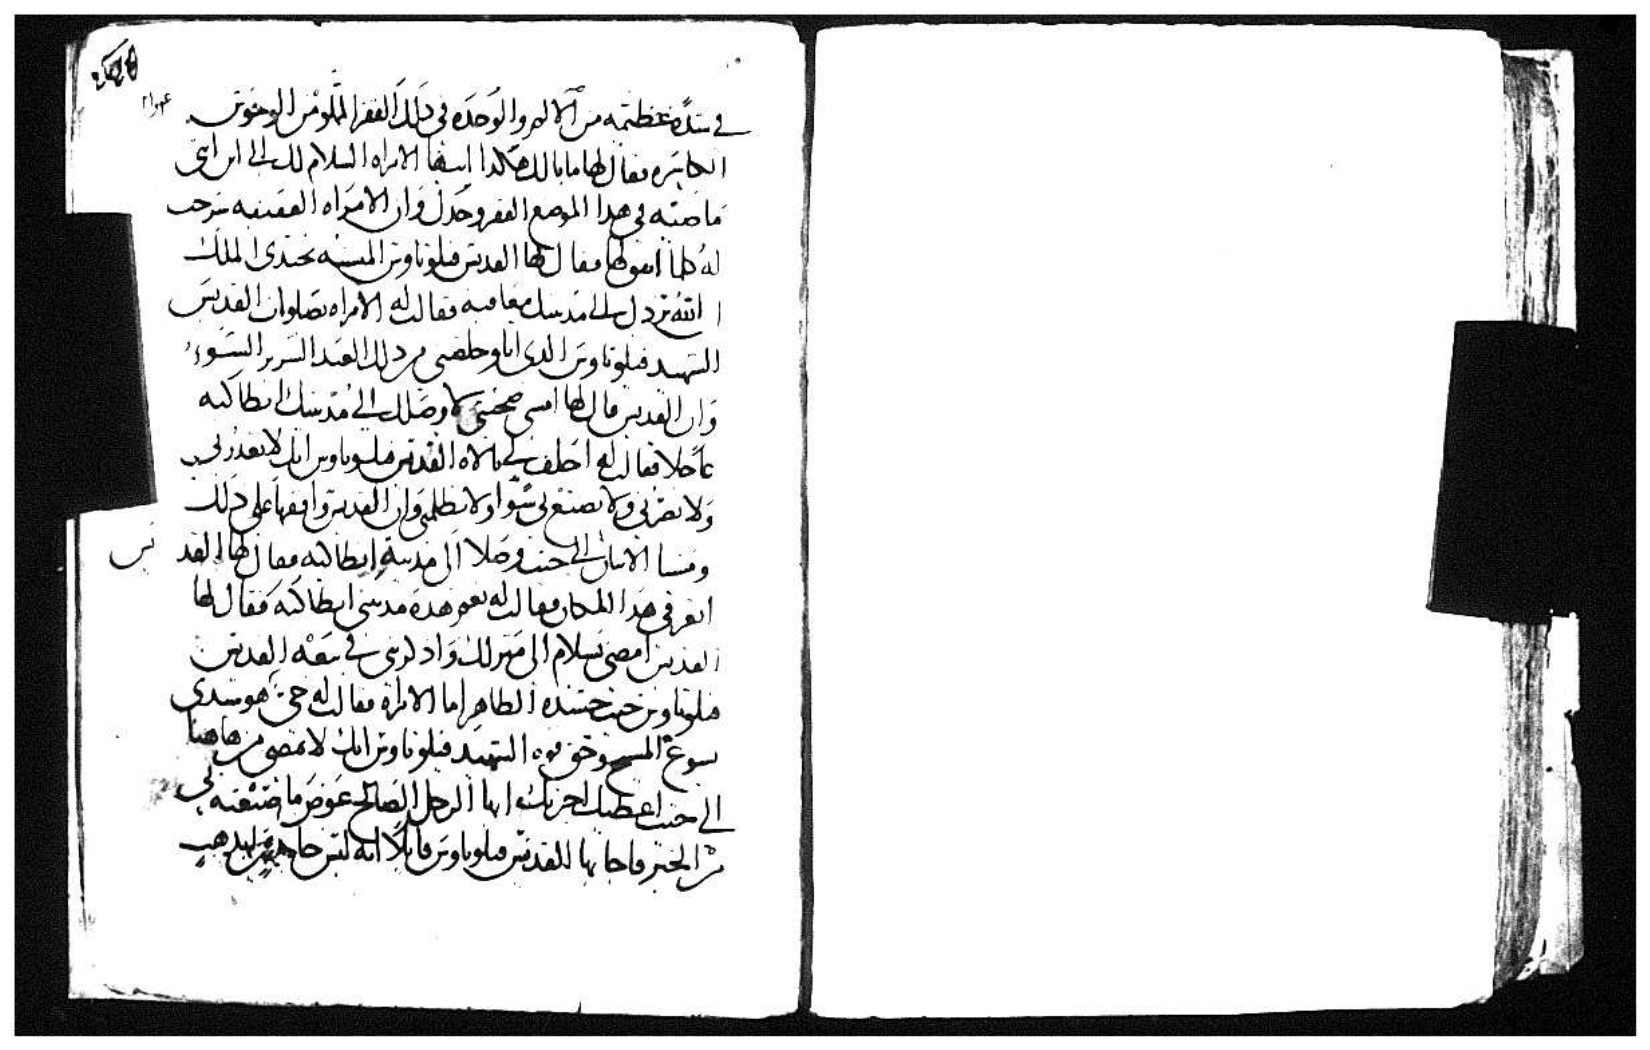 في شدة عظيمه من الالم والوحده في ذلك القفر المملو من الوحوش
الكاسره فقال لها ما بالك هكدا ايتها الامراه السلام لك الى اين
في هدا الموضع القفر وحدك وان الامراه العفيفه شرحت
له كلما اصابها فقال لها القديس فيلوتاوس المسيه تحبدى الملك
الى مدينتك فقالت له الامراه بصلوات القديس
الشهيد فيلوتاوس الدى خلصنى من دلك العبد الشرير السوء
وان القديس قال لها امشى صحبتى لاوصلك الى مدينتك انطاكيه
عاجلا فقالت له احلف لي بالاه القديس فيلوتاوس انك لا تغدر بي
ولا تضربني ولا تصنع بي سوا ولا تظلمني وان القديس وافقها على دلك
ومشيا الاتنان الى حيث وصلا الى مدينة انطاكيه فقال لها القديس
اتعرفي هدا المكان فقالت له نعم هده مدينتي انطاكيه فقال لها
القديس امضي بسلام الى منزلك وادكريني في بيعة القديس
فيلوتاوس حيث جسده الطاهر اما الامراه فقالت له حي هو سيدى
يسوع المسيح وحق قوه الشهيد فيلوتاوس انك لا تمضي من هاهنا
الى حيث اعطيك اجرتك ايها الرجل الصالح عوض ما صنعته بي
من الخير فاجابها القديس فيلوتاوس قايلا انه ليس حاجه بدهب